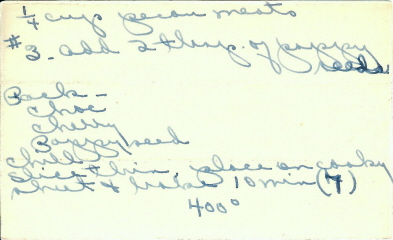 1/4 cup pecan meats
#3. add 2 tbsp. of poppy
seeds
Pack -
Choc
Cherry
Poppyseed
Chill
Slice thin, place on cooky
sheet & bake 10 min (7)
400°